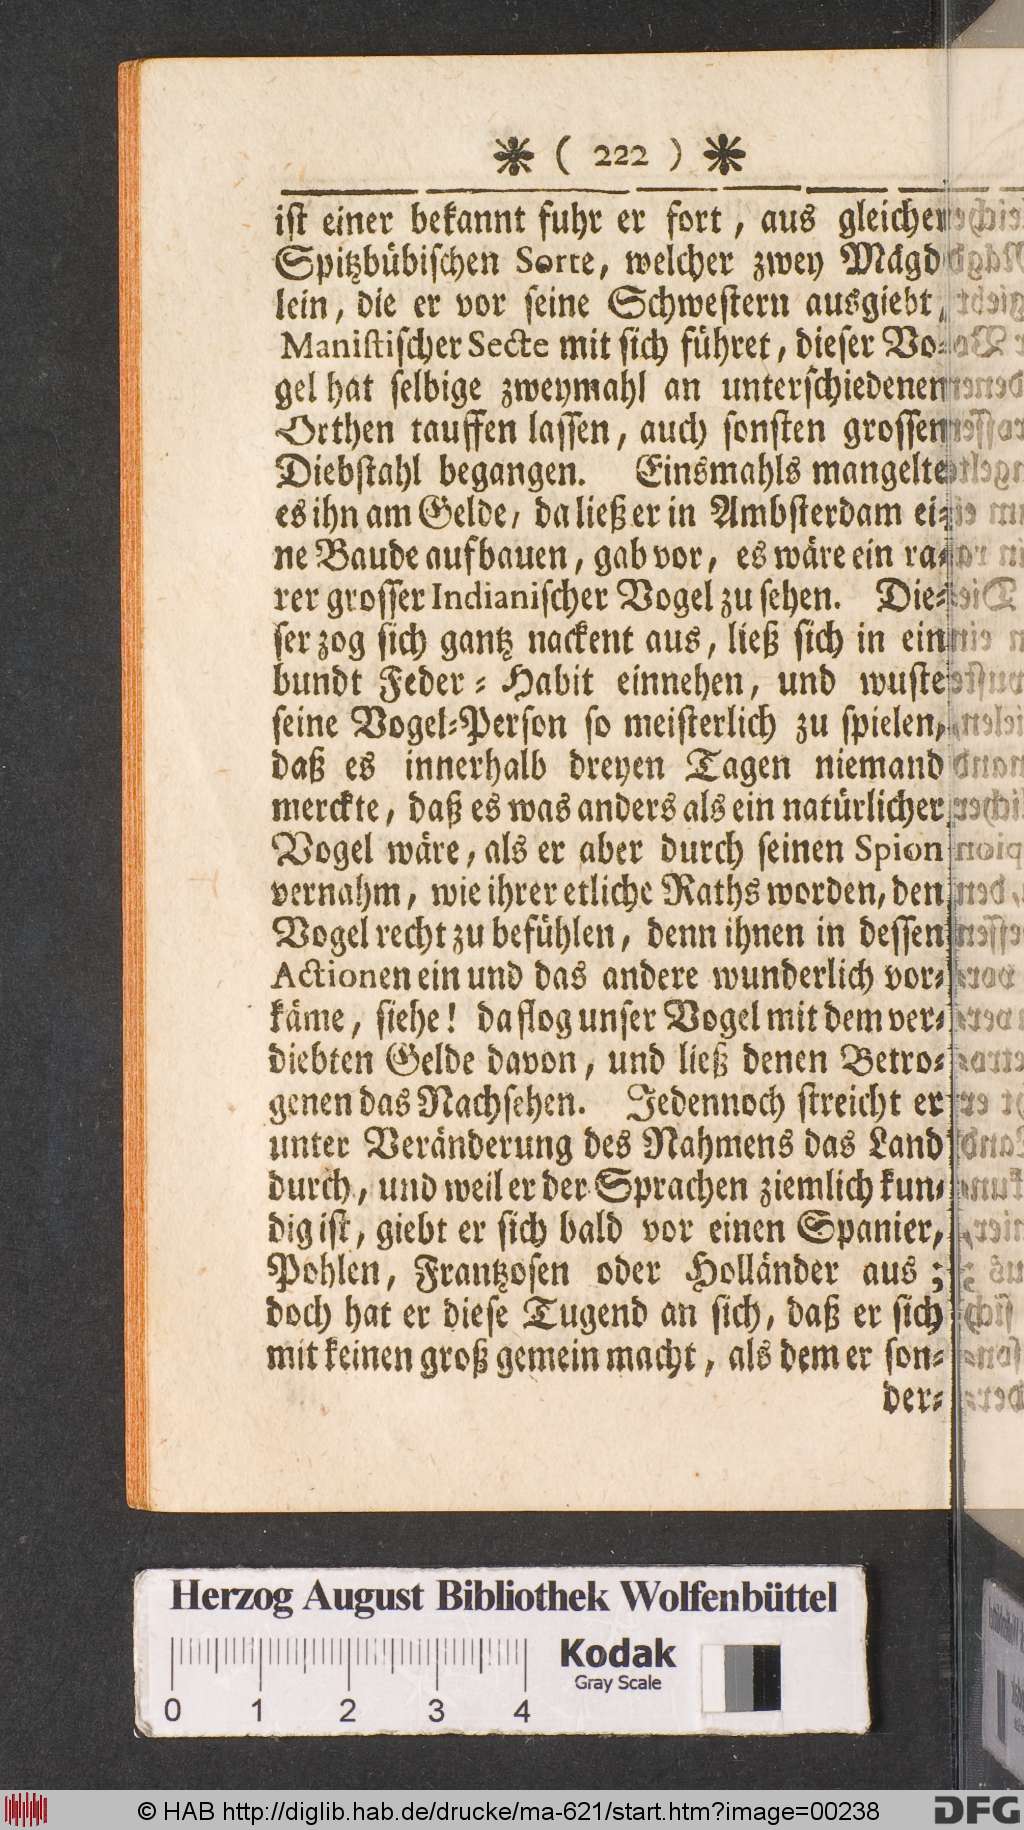 ( 222 )
ist einer bekannt fuhr er fort, aus gleicher
Spitzbübischen Sorte, welcher zwey Mägd
lein, die er vor seine Schwestern ausgiebt,
Manistischer Secte mit sich führet, dieser Vo-
gel hat selbige zweymahl an unterschiedenen
Orthen tauffen lassen, auch sonsten grossen
Diebstahl begangen. Einsmahls mangelte
es ihn am Gelde, da ließ er in Ambsterdam ei-
ne Baude aufbauen, gab vor, es wäre ein ra-
rer grosser Indianischer Vogel zu sehen. Die-
ser zog sich gantz nackent aus, ließ sich in ein
bundt Feder-Habit einnehen, und wuste
seine Vogel-Person so meisterlich zu spielen,
daß es innerhalb dreyen Tagen niemand
merckte, daß es was anders als ein natürlicher
Vogel wäre, als er aber durch seinen Spion
vernahm, wie ihrer etliche Raths worden, den
Vogel recht zu befühlen, denn ihnen in dessen
Actionen ein und das andere wunderlich vor-
käme, siehe! da flog unser Vogel mit dem ver-
diebten Gelde davon, und ließ denen Betro-
genen das Nachsehen. Jedennoch streicht er
unter Veränderung des Nahmens das Land
durch, und weil er der Sprachen ziemlich kun-
dig ist, giebt er sich bald vor einen Spanier,
Pohlen, Frantzosen oder Holländer aus;
doch hat er diese Tugend an sich, daß er sich
mit keinen groß gemein macht, als dem er son-
der-
Herzog August Bibliothek Wolfenbüttel
Kodak
Gray Scale
0 1 2 3 4
© HAB http://diglib.hab.de/drucke/ma-621/start.htm?image=00238
DFG